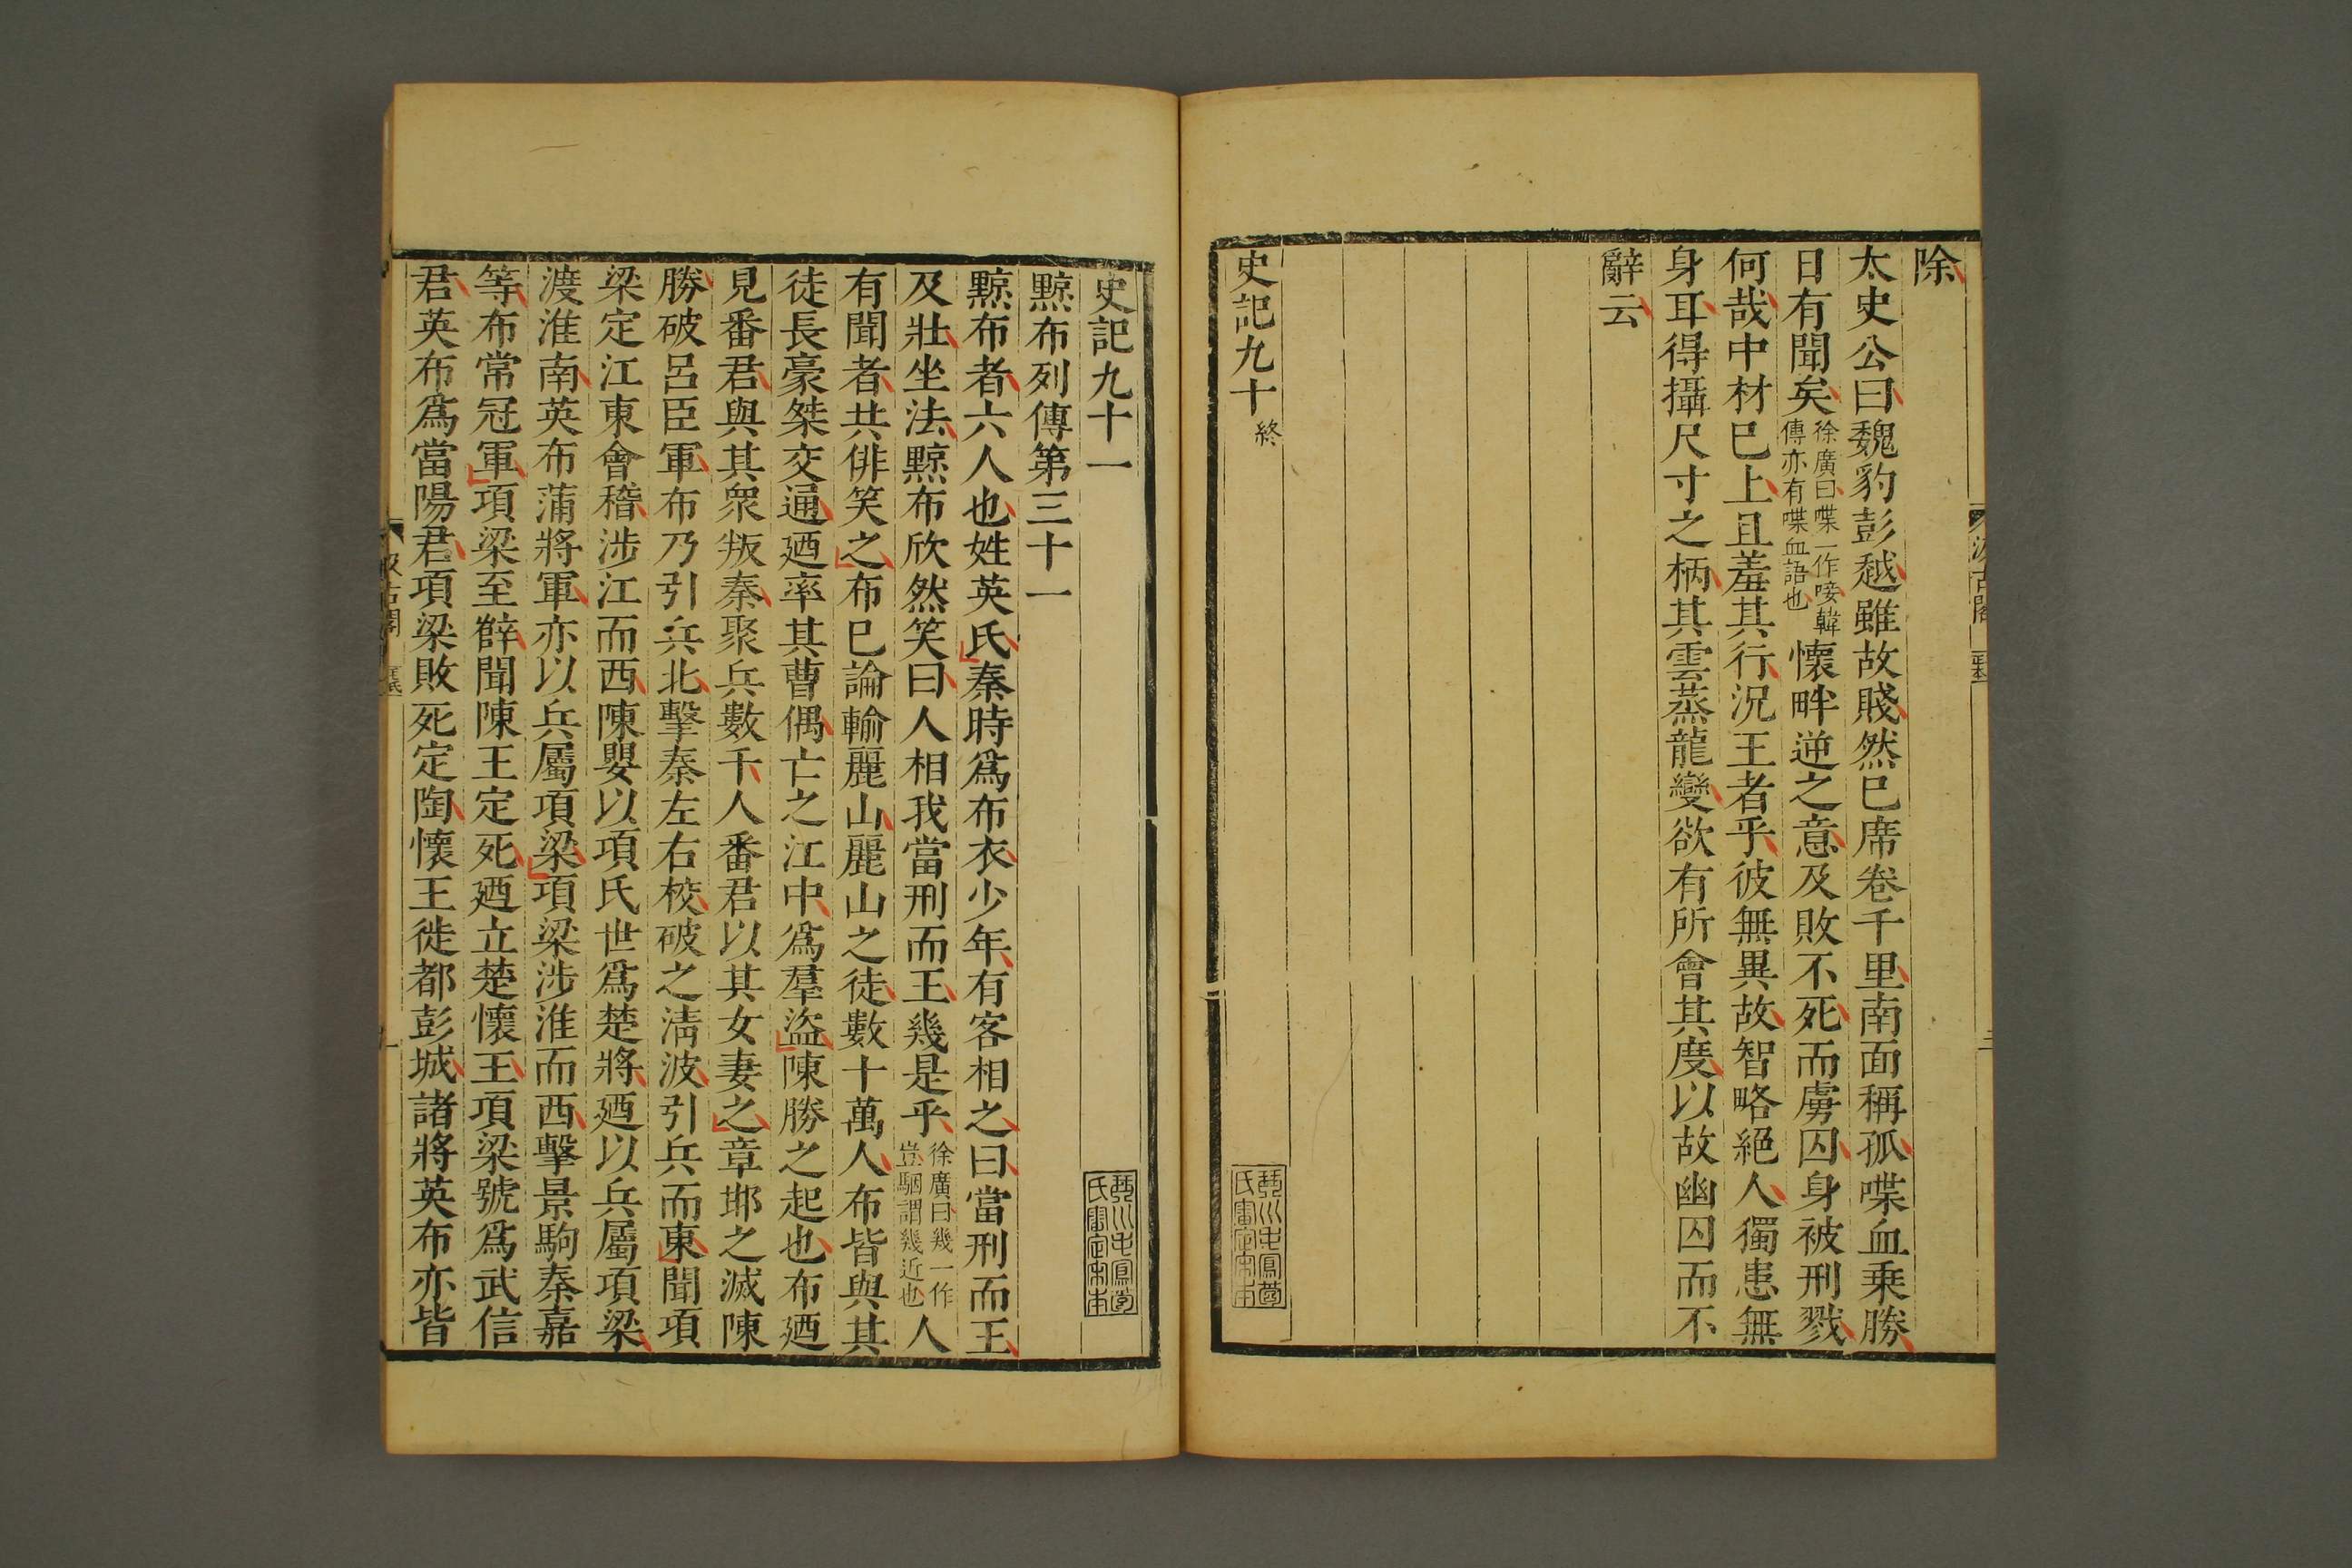 除
太史公曰魏豹彭越雖故賤然已席卷千里南面稱孤喋血乗勝
日有聞矣徐廣曰喋一作唼韓傳亦有喋血語也懷畔逆之意及敗不死而虜囚身被刑戮
何哉中材已上且羞其行況王者乎彼無異故智略絕人獨患無
身耳得攝尺寸之柄其雲蒸龍變欲有所會其度以故幽囚而不
辭云
史記九十終
史記九十一
黥布列傳第三十一
黥布者六人也姓英氏秦時爲布衣少年有客相之曰當刑而王
及壯坐法黥布欣然笑曰人相我當刑而王幾是乎徐廣曰幾一作豈駰謂幾近也人
有聞者共俳笑之布已論輸麗山麗山之徒數十萬人布皆與其
徒長豪桀交通廼率其曹偶亡之江中爲羣盜陳勝之起也布廼
見番君與其衆叛秦聚兵數千人番君以其女妻之章邯之滅陳
勝破呂臣軍布乃引兵北擊秦左右校破之淸波引兵而東聞項
梁定江東會稽涉江而西陳嬰以項氏世爲楚將廼以兵屬項梁
渡淮南英布蒲將軍亦以兵屬項梁項梁涉淮而西擊景駒秦嘉
等布常冠軍項梁至薛聞陳王定死廼立楚懷王項梁號爲武信
君英布爲當陽君項梁敗死定陶懷王徙都彭城諸將英布亦皆